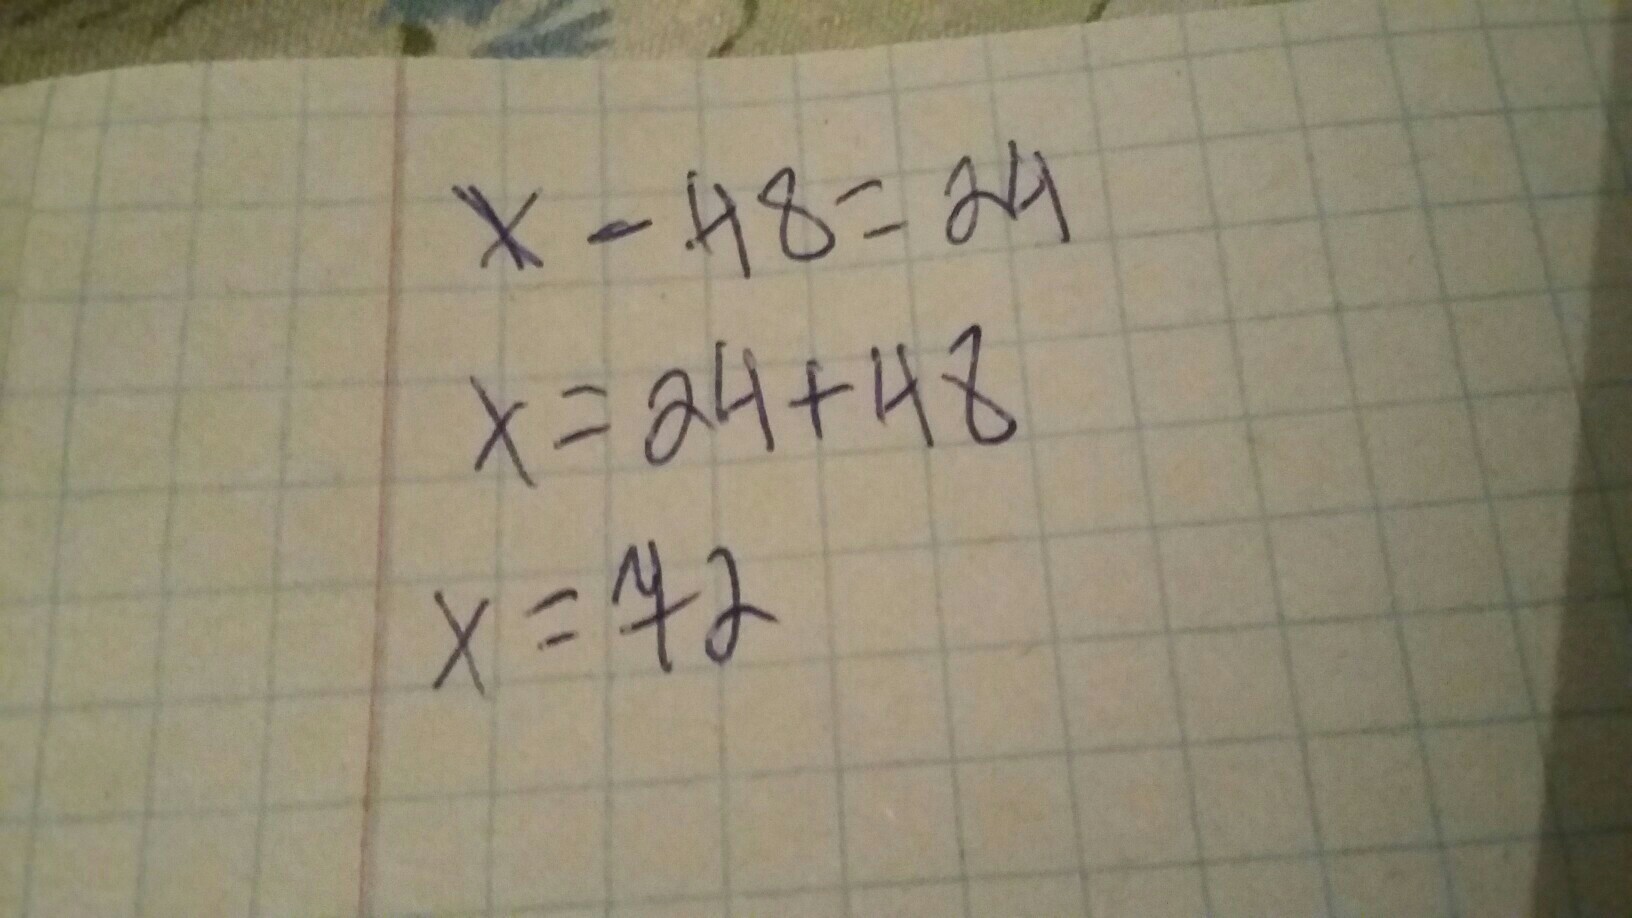 x - 48 = 24
x = 24 + 48
x = 72